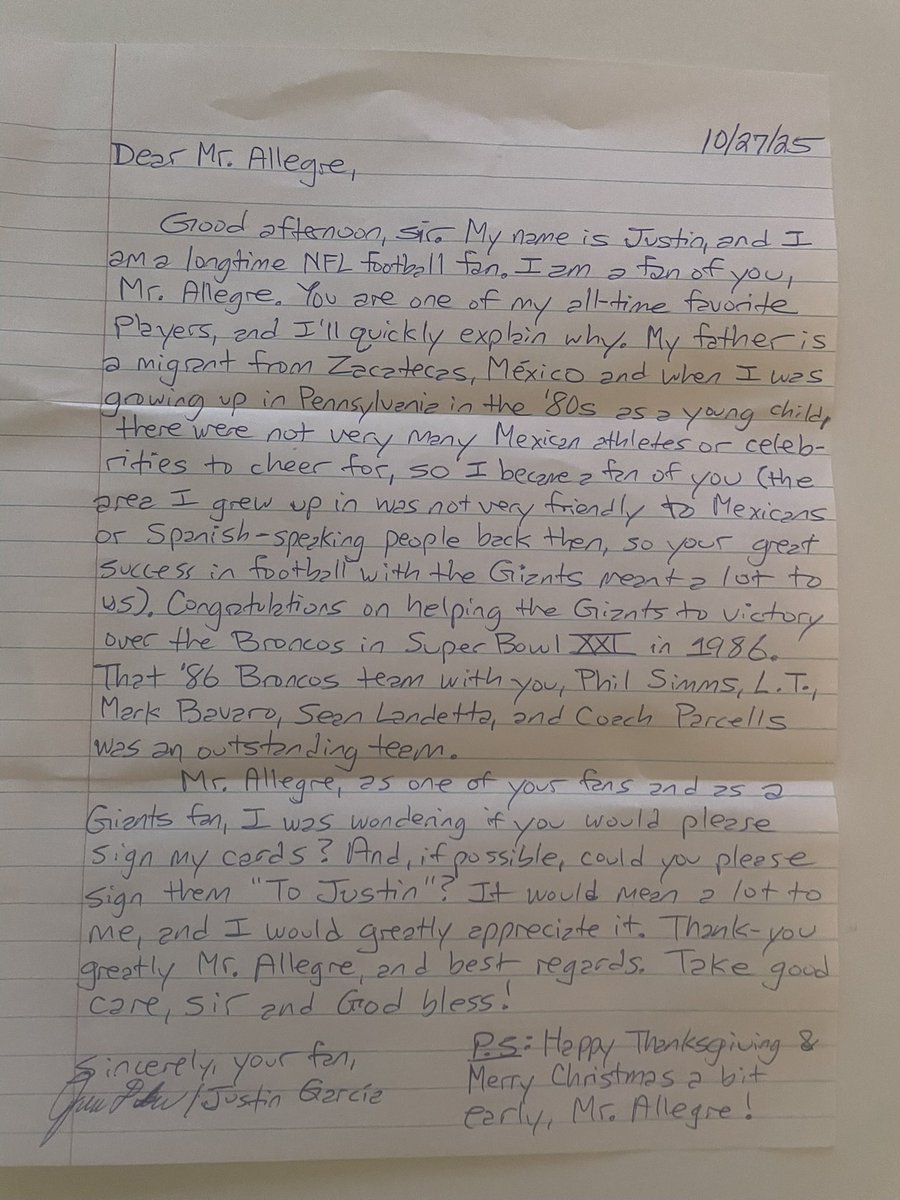 10/27/25
Dear Mr. Allegre,
Good afternoon, sir. My name is Justin, and I
am a longtime NFL football fan. I am a fan of you,
Mr. Allegre. You are one of my all-time favorite
Players, and I'll quickly explain why. My father is
a migrant from Zacatecas, México and when I was
growing up in Pennsylvania in the '80s as a young child,
there were not very many Mexican athletes or celeb-
rities to cheer for, so I became a fan of you (the
area I grew up in was not very friendly to Mexicans
or Spanish-speaking people back then, so your great
success in football with the Giants meant a lot to
us). Congratulations on helping the Giants to victory
over the Broncos in Super Bowl XXI in 1986.
That '86 Broncos team with you, Phil Simms, L.T.,
Mark Bavaro, Sean Landetta, and Coach Parcells
was an outstanding team.
Mr. Allegre, as one of your fans and as a
Giants fan, I was wondering if you would please
sign my cards? And, if possible, could you please
sign them "To Justin"? It would mean a lot to
me, and I would greatly appreciate it. Thank-you
greatly Mr. Allegre, and best regards. Take good
care, sir and God bless!
Sincerely, your fan,
/Justin Garcia
P.S: Happy Thanksgiving &
Merry Christmas a bit
early, Mr. Allegre!